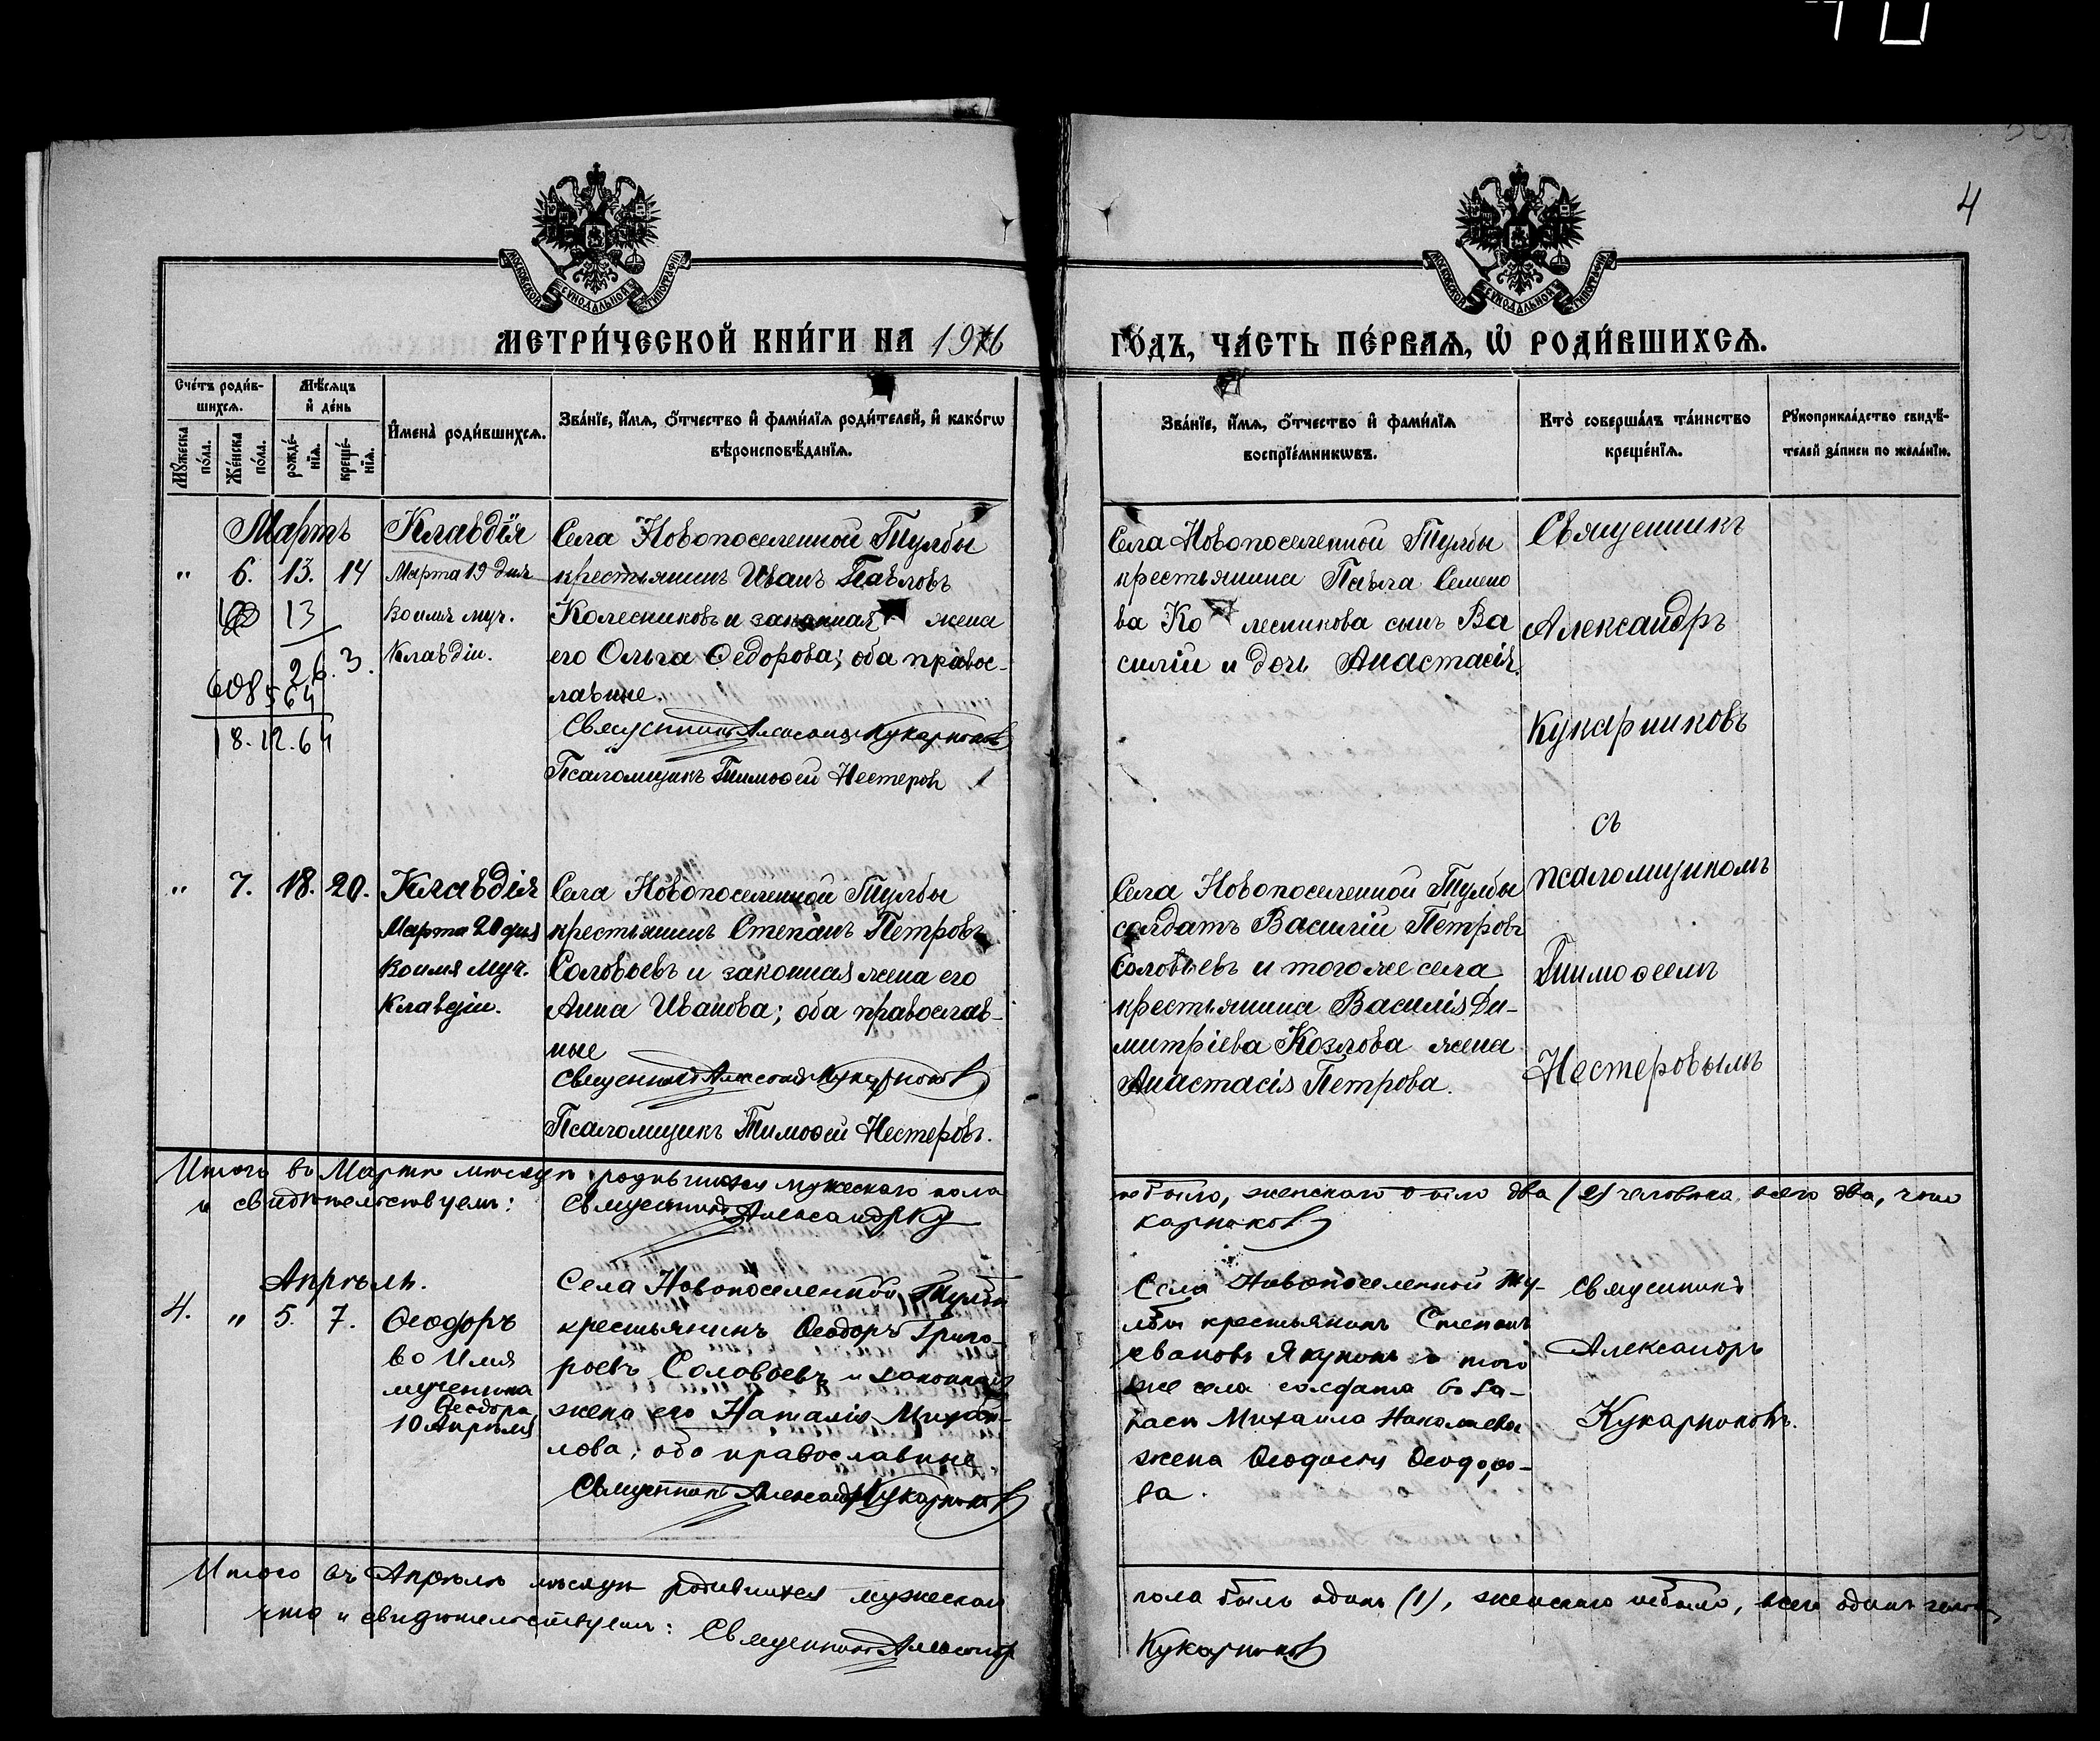 4
МОСКОВСКОЙ СѴНОДАЛЬНОЙ ТИПОГРАФІИ
МОСКОВСКОЙ СѴНОДАЛЬНОЙ ТИПОГРАФІИ
МЕТРИ́ЧЕСКОЙ КНИ́ГИ НА 1916
ГО́ДЪ, ЧА́СТЬ ПЕ́РВАѦ, Ѡ҆ РОДИ́ВШИХСѦ.
Сче́тъ роди́в-
шихсѧ.
Мѣ́сѧцъ
и҆ де́нь
Мꙋ́жеска
по́ла.
Же́нска
по́ла.
рожде́-
нїѧ.
креще́-
нїѧ.
И҆мена̀ роди́вшихсѧ.
Зва́нїе, и҆́мѧ, ѻ҆́тчество и҆ фами́лїѧ роди́телей, и҆ како́гѡ
вѣроисповѣ́данїѧ.
Зва́нїе, и҆́мѧ, ѻ҆́тчество и҆ фами́лїѧ
воспрїе́мникѡвъ.
Кто̀ соверша́лъ та́инство
креще́нїѧ.
Рꙋкоприкла́дство свидѣ́-
телей за́писи по жела́нїю.
Мартъ
" 6. 13. 14
13
26.3.
608564
18.12.64
Клавдія
Марта 19 дня
во имя муч.
Клавдіи.
Села Новопоселенной Тулбы
крестьянинъ Иванъ Павловъ
Колесниковъ и законная жена
его Ольга Ѳедорова; оба правос-
лавные.
Священникъ Александръ Кукарниковъ
Псаломщикъ Тимоѳей Нестеровъ
Села Новопоселенной Тулбы
крестьянина Павла Семено
ва Ко лесникова сынъ Ва
силій и дочь Анастасія.
Священникъ
Александръ
Кукарниковъ
съ
псаломщикомъ
Тимоѳеемъ
Нестеровымъ
" 7. 18. 20.
Клавдія
Марта 20 дня
во имя муч.
Клавдіи.
Села Новопоселенной Тулбы
крестьянинъ Степанъ Петровъ
Соловьевъ и законная жена его
Анна Иванова; оба православ-
ные
Священникъ Александръ Кукарниковъ
Псаломщикъ Тимоѳей Нестеровъ.
Села Новопоселенной Тулбы
солдатъ Василій Петровъ
Соловьевъ и того же села
крестьянина Василія Ди-
митріева Козлова жена
Анастасія Петрова.
Итого въ Мартѣ мѣсяцѣ родившихся мужескаго пола
не было, женскаго было два (2) человѣка, всего два, что
и свидѣтельствуемъ: Священникъ Александръ Ку
карниковъ
Апрѣль.
4. " 5. 7.
Ѳеодоръ
во имя
мученика
Ѳеодора
10 Апрѣля
Села Новопоселенной Тулбы
крестьянинъ Ѳеодоръ Григо-
рьевъ Соловьевъ и законная
жена его Наталія Михай-
лова; оба православные
Священникъ Александръ Кукарниковъ
Села Новопоселенной Ту-
лбы крестьянинъ Степанъ
Ивановъ и того
же села солдата
Михаила Николаева
жена Ѳеодосія Ѳеодоро-
ва.
Священникъ
Александръ
Кукарниковъ.
Итого въ Апрѣлѣ мѣсяцѣ родившихся мужескаго
пола былъ одинъ (1), женскаго не было, всего одинъ
что и свидѣтельствуемъ: Священникъ Александръ
Кукарниковъ